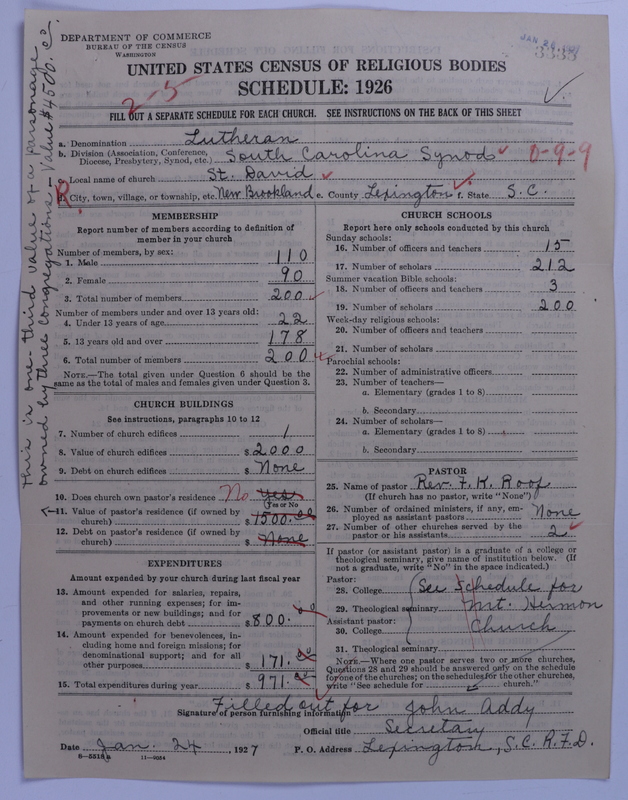 DEPARTMENT OF COMMERCE
BUREAU OF THE CENSUS
WASHINGTON
3333
UNITED STATES CENSUS OF RELIGIOUS BODIES
SCHEDULE: 1926
2-5
FILL OUT A SEPARATE SCHEDULE FOR EACH CHURCH. SEE INSTRUCTIONS ON THE BACK OF THIS SHEET
a. Denomination Lutheran
b. Division (Association, Conference, Diocese, Presbytery, Synod, etc.) South Carolina Synod 0-9-9
c. Local name of church St. David
R d. City, town, village, or township, etc. New Brookland e. County Lexington f. State S.C.
This is one-third value of a parsonage
owned by three congregations. Value $4500.00
MEMBERSHIP
Report number of members according to definition of
member in your church
Number of members, by sex:
1. Male 110
2. Female 90
3. Total number of members 200
Number of members under and over 13 years old:
4. Under 13 years of age 22
5. 13 years old and over 178
6. Total number of members 200
NOTE.—The total given under Question 6 should be the
same as the total of males and females given under Question 3.
CHURCH BUILDINGS
See instructions, paragraphs 10 to 12
7. Number of church edifices 1
8. Value of church edifices $ 2000
9. Debt on church edifices $ None
10. Does church own pastor's residence No. Yes
Yes or No
11. Value of pastor's residence (if owned by
church) $ 1500.00
12. Debt on pastor's residence (if owned by
church) $ None
EXPENDITURES
Amount expended by your church during last fiscal year
13. Amount expended for salaries, repairs,
and other running expenses; for im-
provements or new buildings; and for
payments on church debt $ 800.00
14. Amount expended for benevolences, in-
cluding home and foreign missions; for
denominational support; and for all
other purposes $ 171.00
15. Total expenditures during year $ 971.00
CHURCH SCHOOLS
Report here only schools conducted by this church
Sunday schools:
16. Number of officers and teachers 15
17. Number of scholars 212
Summer vacation Bible schools:
18. Number of officers and teachers 3
19. Number of scholars 200
Week-day religious schools:
20. Number of officers and teachers
21. Number of scholars
Parochial schools:
22. Number of administrative officers
23. Number of teachers—
a. Elementary (grades 1 to 8)
b. Secondary
24. Number of scholars—
a. Elementary (grades 1 to 8)
b. Secondary
PASTOR
25. Name of pastor Rev. F. K. Roof
(If church has no pastor, write "None")
26. Number of ordained ministers, if any, em-
ployed as assistant pastors None
27. Number of other churches served by the
pastor or his assistants 2
If pastor (or assistant pastor) is a graduate of a college or
theological seminary, give name of institution below. (If
not a graduate, write "No" in the space indicated.)
Pastor:
28. College See Schedule for
29. Theological seminary Mt. Hermon
Assistant pastor:
30. College Church
31. Theological seminary
NOTE.—Where one pastor serves two or more churches,
Questions 28 and 29 should be answered only on the schedule
for one of the churches; on the schedules for the other churches,
write "See schedule for church."
Filled out for John Addy
Signature of person furnishing information
Official title Secretary
Date Jan. 24, 1927 P. O. Address Lexington, S.C. R.F.D.
8—5518a 11—9034